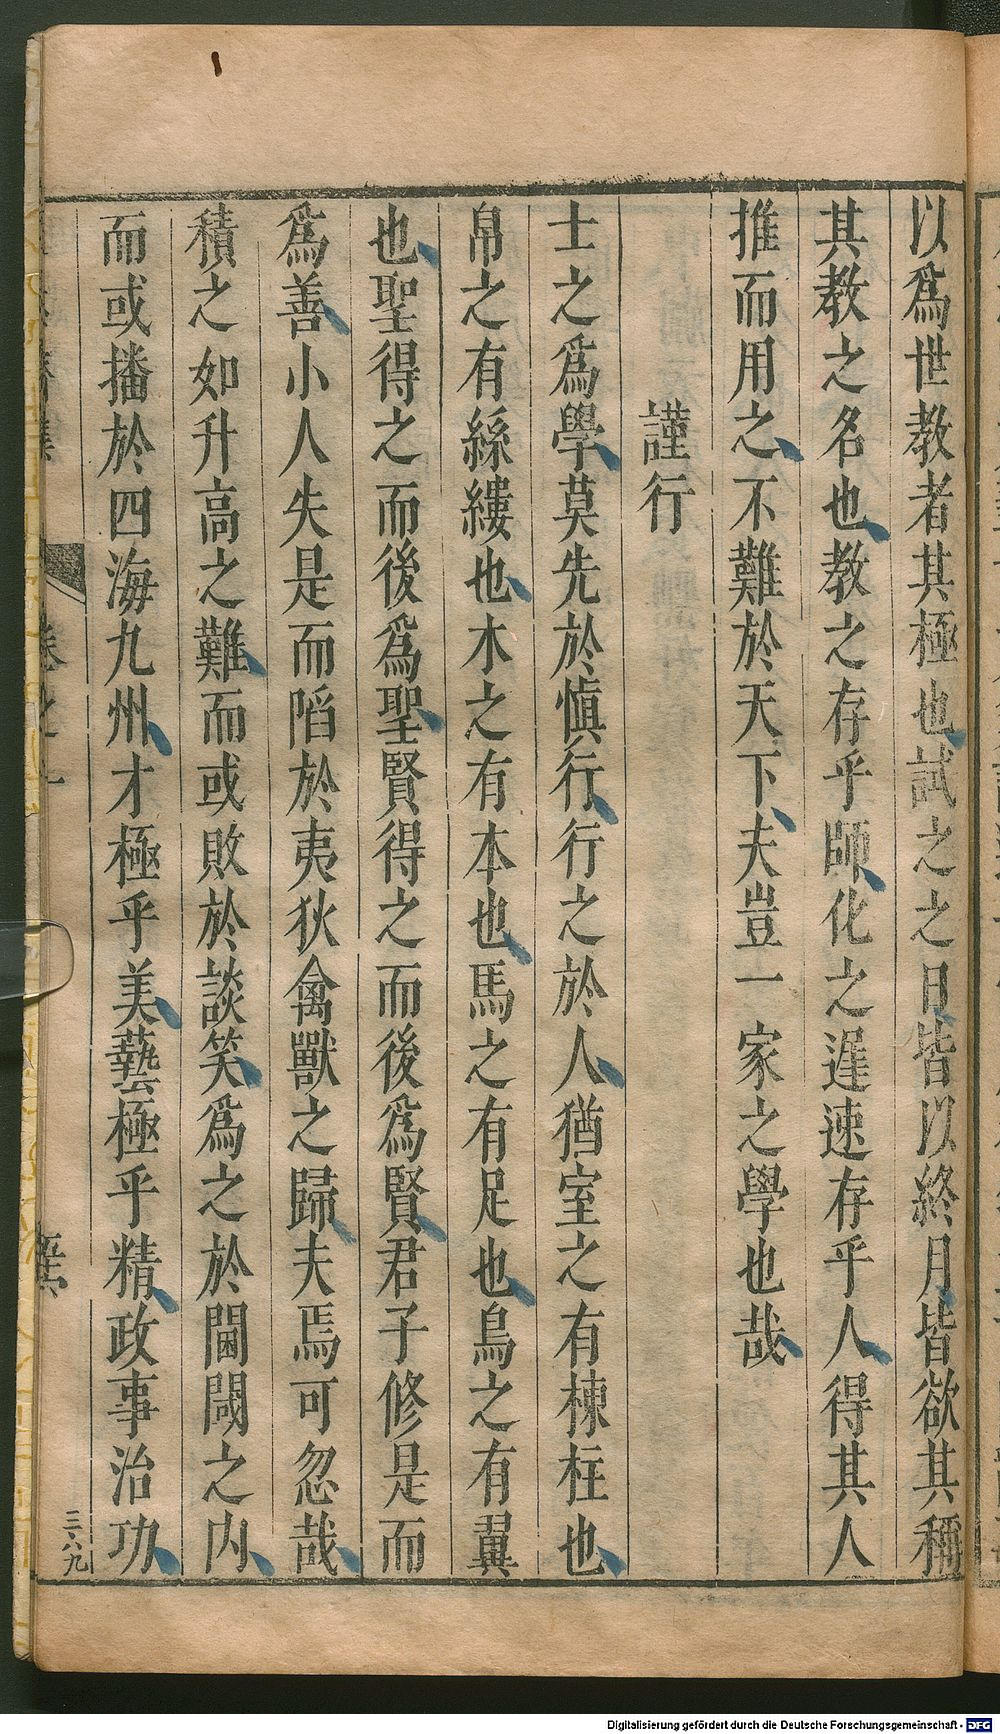 以爲世教者其極也試之之日皆以終月皆欲其稱
其教之名也教之存乎師化之遲速存乎人得其人
推而用之不難於天下夫豈一家之學也哉
謹行
士之爲學莫先於愼行行之於人猶室之有棟柱也
帛之有絲縷也木之有本也馬之有足也鳥之有翼
也聖得之而後爲聖賢得之而後爲賢君子修是而
爲善小人失是而陷於夷狄禽獸之歸夫焉可忽哉
積之如升高之難而或敗於談笑爲之於閫閾之内
而或播於四海九州才極乎美藝極乎精政事治功
三六九
Digitalisierung gefördert durch die Deutsche Forschungsgemeinschaft - DFG